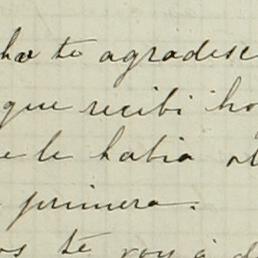 te agradesc
que recibi ho
e le habia al
primera.
os te voy á d